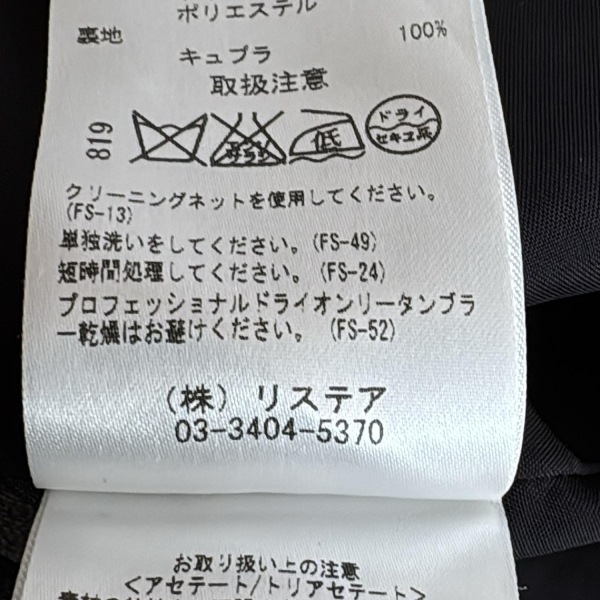 ポリエステル
裏地 100%
キュプラ
取扱注意
819
エンソサラシ
低
ドライ
セキユ系
クリーニングネットを使用してください。
(FS-13)
単独洗いをしてください。(FS-49)
短時間処理してください。(FS-24)
プロフェッショナルドライオンリータンブラ
ー乾燥はお避けください。(FS-52)
(株) リステア
03-3404-5370
お取り扱い上の注意
<アセテート/トリアセテート>